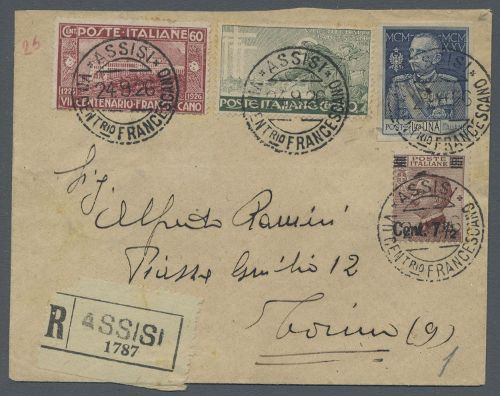 25
CENT POSTE·ITALIANE 60
1227 1926
VII CENTENARIO·FRANCESCANO
POSTE ITALIANE CENT
MCM XXV
POSTE LIRA UNA
POSTE ITALIANE
Cent. 7½
ASSISI
24.9.26
VII CENTrio FRANCESCANO
ASSISI
VII CENTrio FRANCESCANO
ASSISI
VII CENTrio FRANCESCANO
Sig
Alfredo
Piazza Giulio 12
Torino (9)
R ASSISI
1787
1